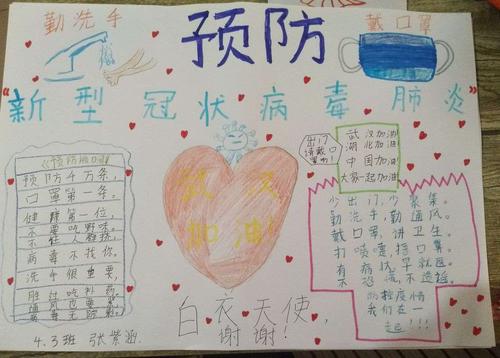 勤洗手
预防
戴口罩
"新型冠状病毒肺炎"
《预防顺口溜》
预防千万条，
口罩第一条。
健康第一位，
不要吃野味。
不往人群挤，
病毒不找你。
洗手很重要，
胜过吃补药。
通风也要紧，
武汉
加油!
出门
请戴口
罩!
武汉加油
湖北加油
中国加油
大家一起加油
少出门，少聚集。
勤洗手，勤通风。
戴口罩，讲卫生。
打喷嚏，捂口鼻。
有病状，早就医。
不恐慌，不造谣。
防控疫情
我们在一
起!!!
白衣天使，
谢谢!
4.3班 张紫涵